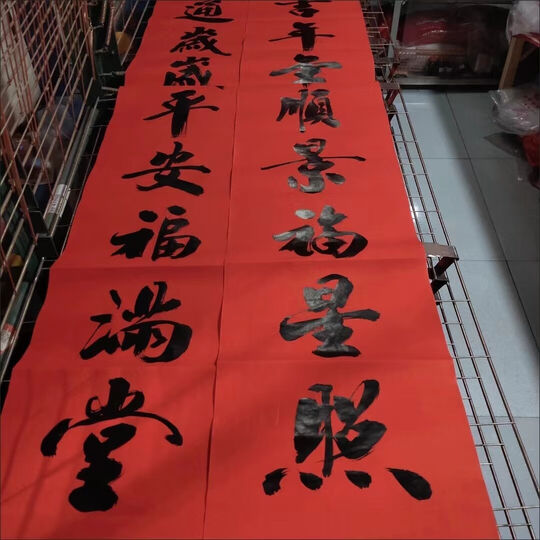 吉年年順景福星照
通歲歲平安福滿堂